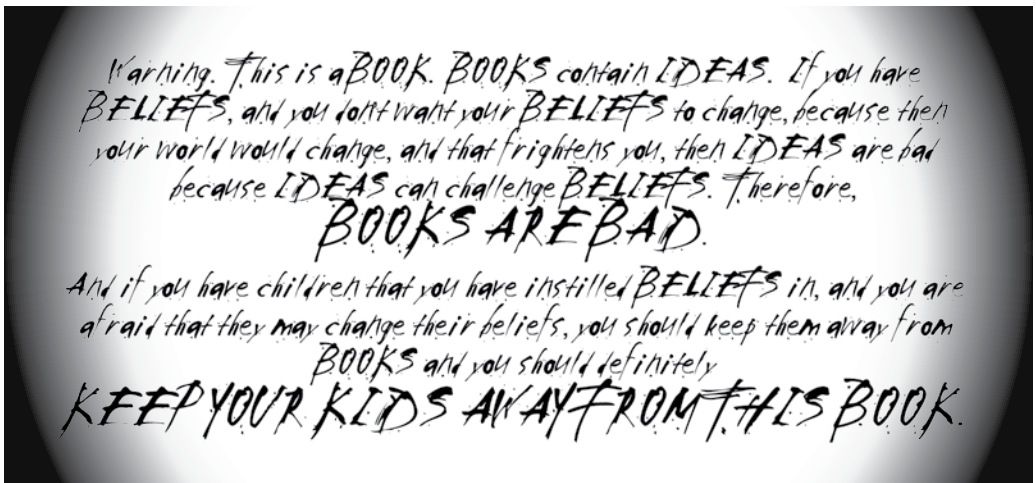 Warning. This is a BOOK. BOOKS contain IDEAS. If you have
BELIEFS, and you don't want your BELIEFS to change, because then
your world would change, and that frightens you, then IDEAS are bad
because IDEAS can challenge BELIEFS. Therefore,
BOOKS ARE BAD.
And if you have children that you have instilled BELIEFS in, and you are
afraid that they may change their beliefs, you should keep them away from
BOOKS and you should definitely
KEEP YOUR KIDS AWAY FROM THIS BOOK.